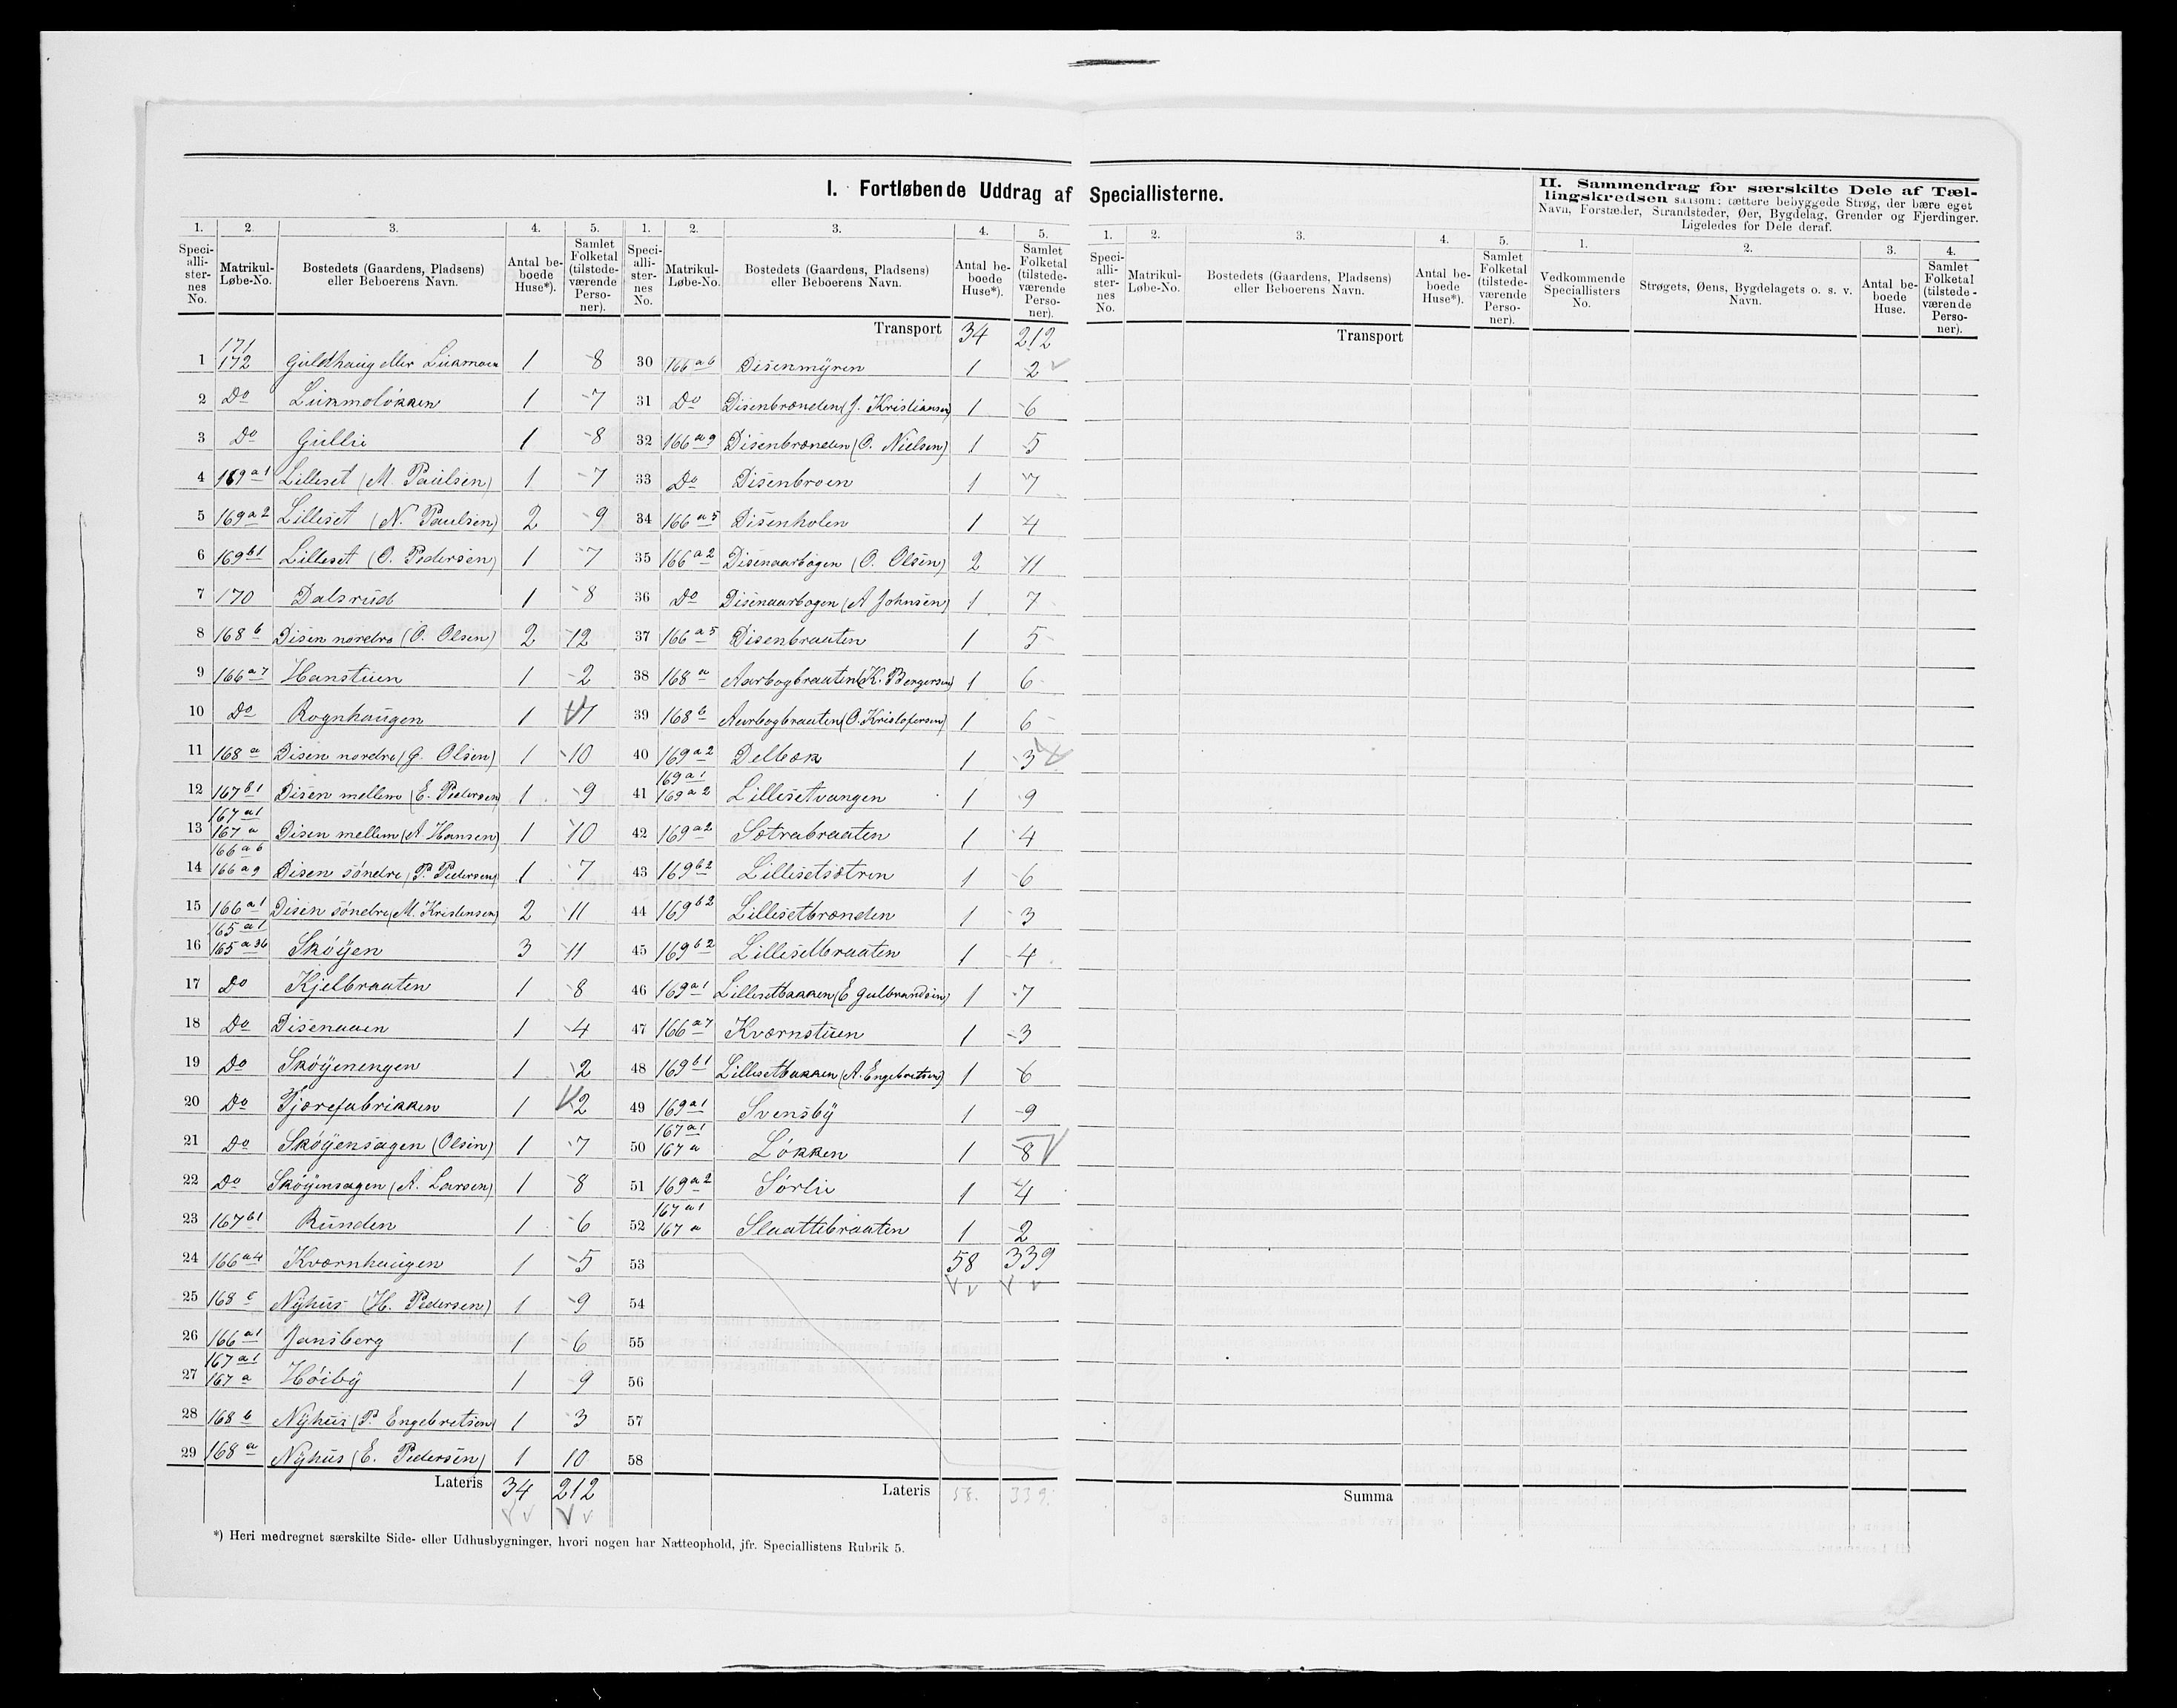 I. Fortløbende Uddrag af Speciallisterne.
II. Sammendrag for særskilte Dele af Tæl-
lingskredsen saasom: tættere bebyggede Strøg, der bære eget
Navn, Forstæder, Strandsteder, Øer, Bygdelag, Grender og Fjerdinger.
Ligeledes for Dele deraf.
1. 2. 3. 4. 5.
Speci-alli-ster-nes No. Matrikul-Løbe-No. Bostedets (Gaardens, Pladsens) eller Beboerens Navn. Antal be-boede Huse*). Samlet Folketal (tilstede-værende Perso-ner).
171
1 172 Guldthaug eller Linmoen 1 8
2 Do Linmoløkken 1 7
3 Do Gullii 1 8
4 169 a1 Lilleset (M. Paulsen) 1 7
5 169 a2 Lilleset (N. Paulsen) 2 9
6 169 b1 Lilleset (O. Pedersen) 1 7
7 170 Dalsrud 1 8
8 168 b Disen nordre (O. Olsen) 2 12
9 166 a7 Hanstuen 1 2
10 Do Rognhaugen 1 7
11 168 a Disen nordre (G. Olsen) 1 10
12 167 b1 Disen mellem (E. Pedersen) 1 9
167 a1
13 167 a Disen mellem (A. Hansen) 1 10
166 a6
14 166 a9 Disen søndre (P. Pedersen) 1 7
15 166 a1 Disen søndre (M. Kristensen) 2 11
165 a1
16 165 a36 Skøyen 3 11
17 Do Kjelbraaten 1 8
18 Do Disenaaen 1 4
19 Do Skøyenengen 1 2
20 Do Tjærefabrikken 1 2
21 Do Skøyensagen (Olsen) 1 7
22 Do Skøyensagen (A. Larsen) 1 8
23 167 b1 Runden 1 6
24 166 a4 Kværnhaugen 1 5
25 168 c Nyhus (H. Pedersen) 1 9
26 166 a1 Jansberg 1 6
167 a1
27 167 a Høiby 1 9
28 168 b Nyhus (P. Engebretsen) 1 3
29 168 a Nyhus (E. Pedersen) 1 10
Lateris 34 212
1. 2. 3. 4. 5.
Speci-alli-ster-nes No. Matrikul-Løbe-No. Bostedets (Gaardens, Pladsens) eller Beboerens Navn. Antal be-boede Huse*). Samlet Folketal (tilstede-værende Perso-ner).
Transport 34 212
30 166 a6 Disenmyren 1 2
31 Do Disenbrænden (J. Kristiansen) 1 6
32 166 a9 Disenbrænden (O. Nielsen) 1 5
33 Do Disenbroen 1 7
34 166 a5 Disenholen 1 4
35 166 a2 Disenaarbogen (O. Olsen) 2 11
36 Do Disenaarbogen (A Johnsen) 1 7
37 166 a5 Disenbraaten 1 5
38 168 a Aarbogbraaten (K. Bergersen) 1 6
39 168 b Aarbogbraaten (O. Kristofersen) 1 6
40 169 a2 Delbæk 1 3
169 a1
41 169 a2 Lillesetvangen 1 9
42 169 a2 Sætrabraaten 1 4
43 169 b2 Lillesetsætren 1 6
44 169 b2 Lillesetbrænden 1 3
45 169 b2 Lillesetbraaten 1 4
46 169 a1 Lillesetbakken (E Gulbrandsen) 1 7
47 166 a7 Kværnstuen 1 3
48 169 b1 Lillesetbakken (A. Engebretsen) 1 6
49 169 a1 Svensby 1 9
167 a1
50 167 a Løkken 1 8
51 169 a2 Sørlie 1 4
167 a1
52 167 a Slaattebraaten 1 2
53 58 339
54
55
56
57
58
Lateris 58. 339.
1. 2. 3. 4. 5.
Speci-alli-ster-nes No. Matrikul-Løbe-No. Bostedets (Gaardens, Pladsens) eller Beboerens Navn. Antal be-boede Huse*). Samlet Folketal (tilstede-værende Perso-ner).
Transport
Summa
1. 2. 3. 4.
Vedkommende Speciallisters No. Strøgets, Øens, Bygdelagets o. s. v. Navn. Antal be-boede Huse. Samlet Folketal (tilstede-værende Perso-ner).
*) Heri medregnet særskilte Side- eller Udhusbygninger, hvori nogen har Natteophold, jfr. Speciallistens Rubrik 5.